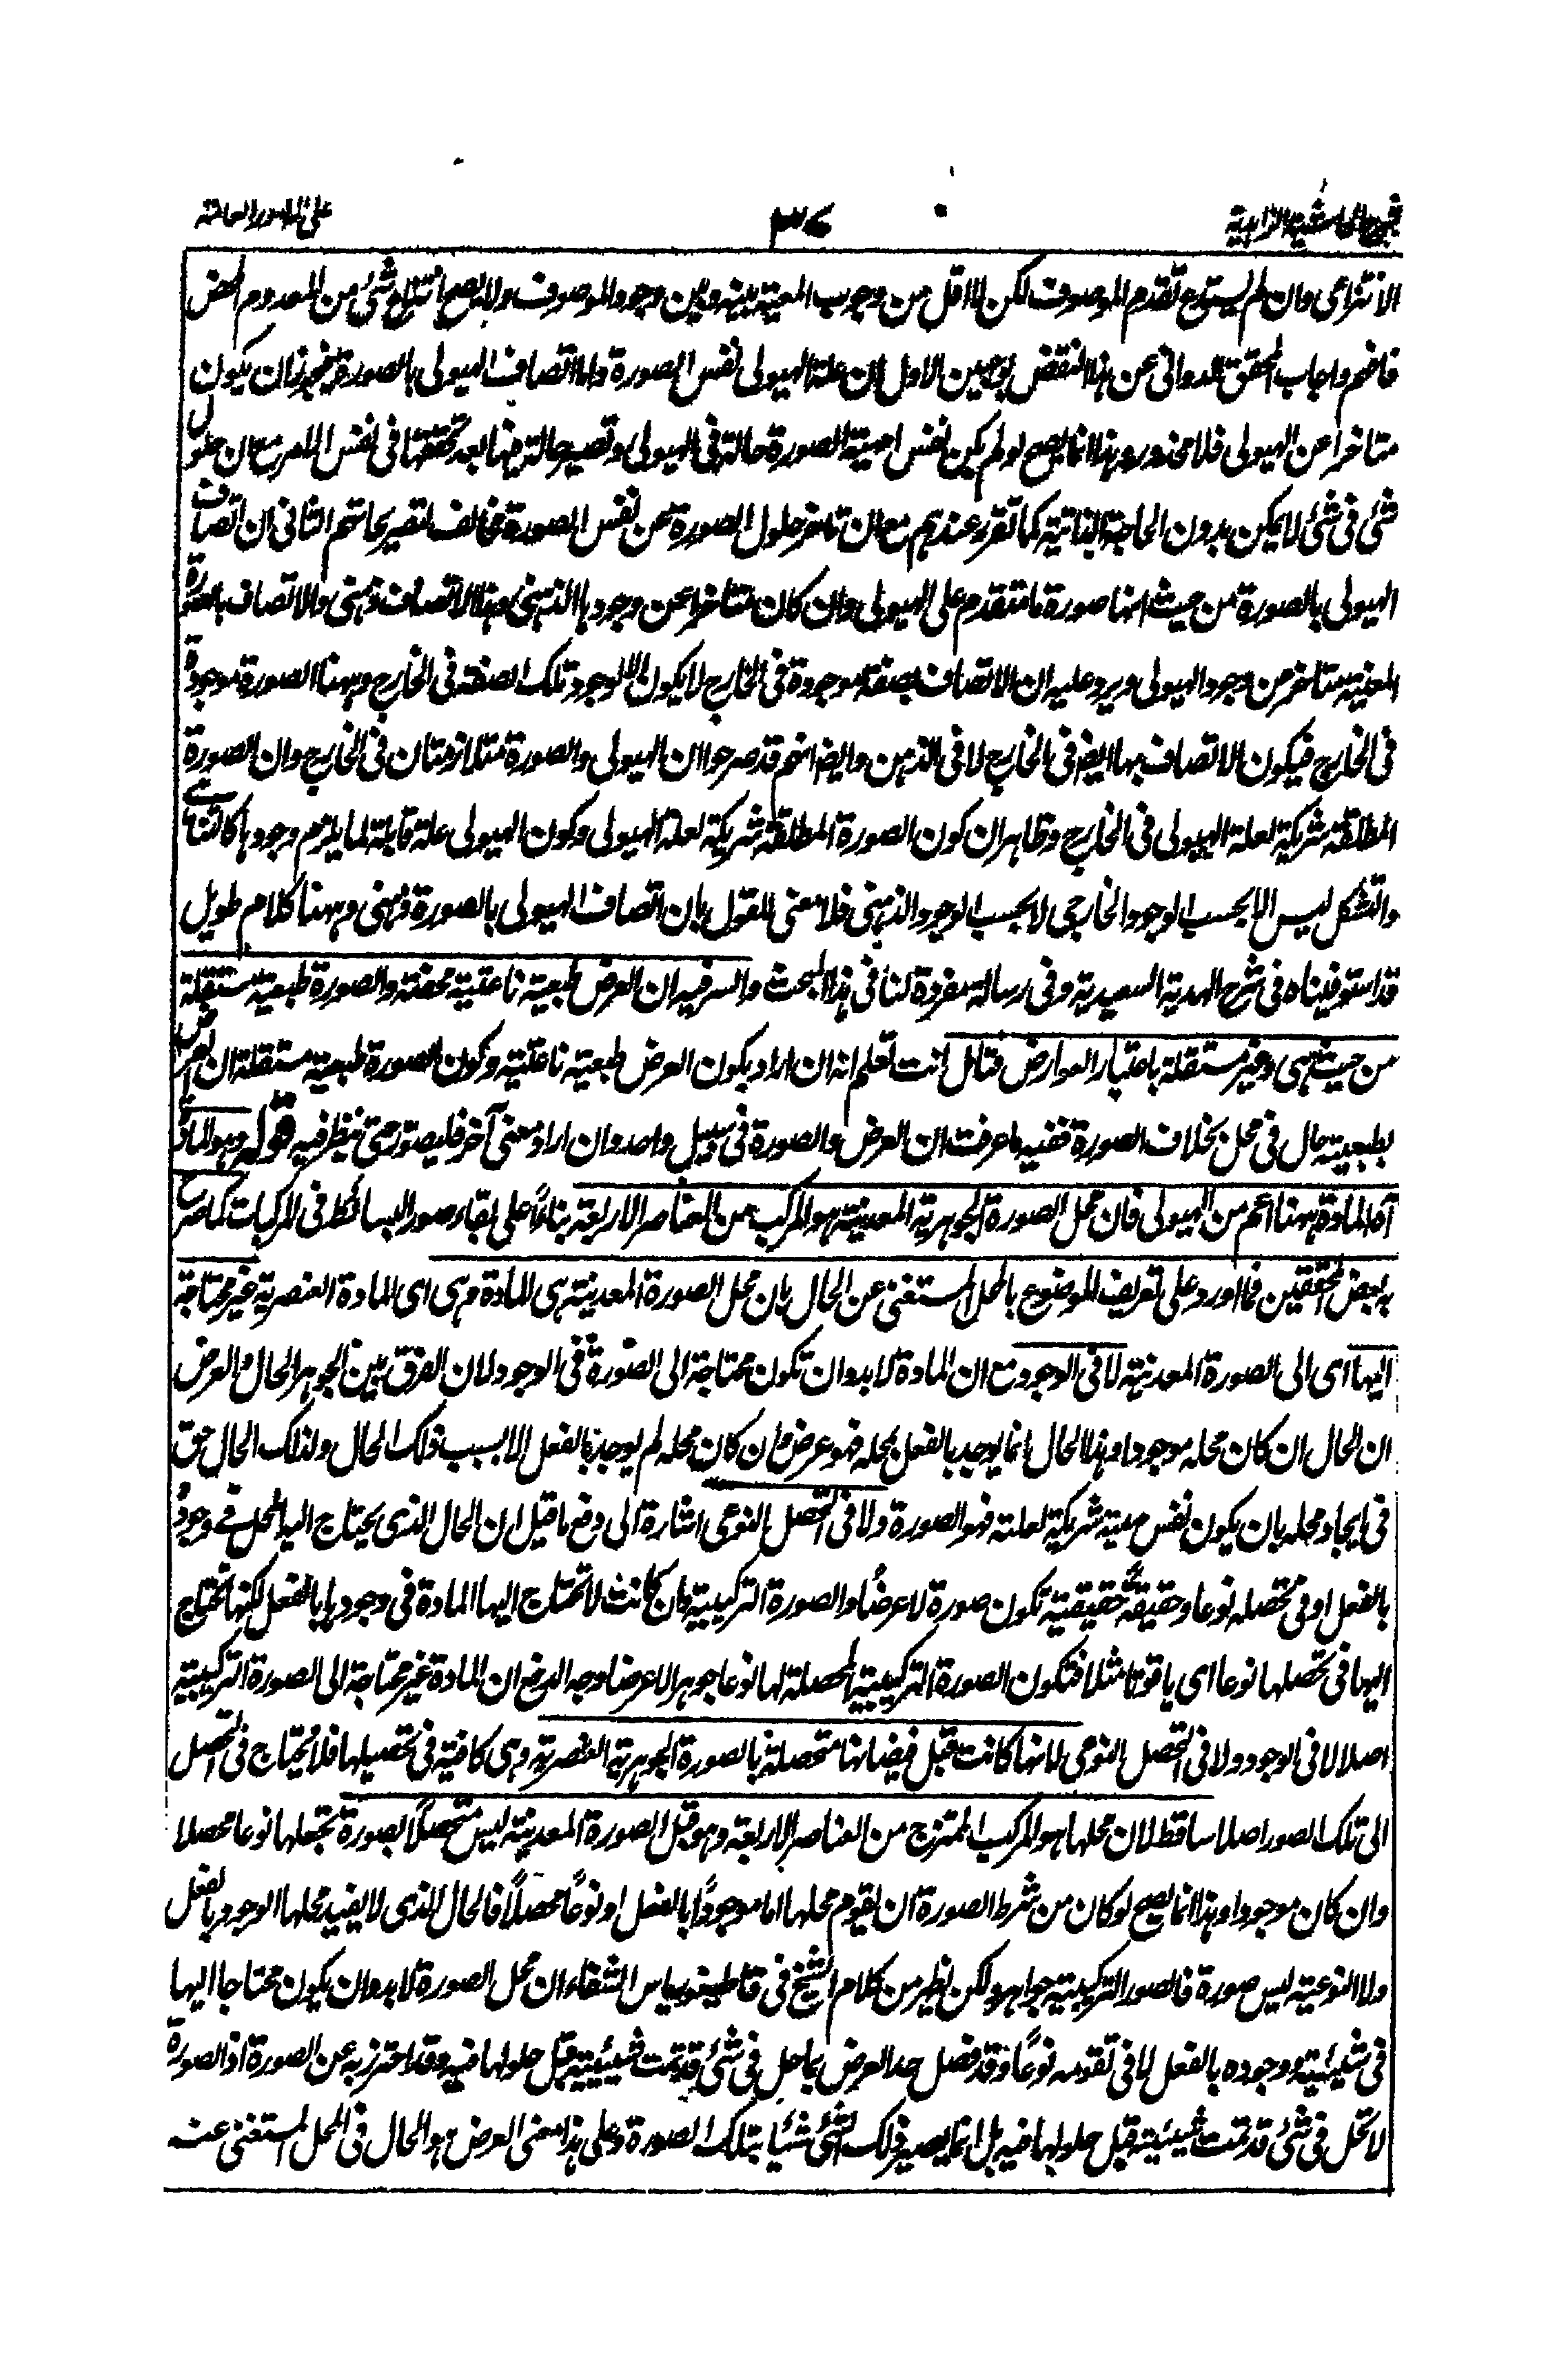 شرح الحاشية الزاهدية ٣٧ على الامور العامة
الانتزاعى وان لم يستدع تقدم الموصوف لكن لا اقل من وجوب المعية بينه وبين وجود الموصوف ولا يصح انتزاع شئ من المعدوم المحض
فافهم واجاب المحقق الدوانى عن هذا النقض بوجهين الاول ان علة الهيولى نفس الصورة واما اتصاف الهيولى بالصورة فيجوز ان يكون
متاخرا عن الهيولى فلا محذور وهذا انما يصح لو لم يكن نفس ماهية الصورة حالة فى الهيولى وتصير حالة فيها بعد تحققها فى نفس الامر مع ان حلول
شئ فى شئ لا يمكن بدون الحاجة الذاتية كما تقرر عندهم مع ان تاخر حلول الصورة عن نفس الصورة مخالف لتصريحاتهم الثانى ان اتصاف
الهيولى بالصورة من حيث انها صورة ما متقدم على الهيولى وان كان متاخرا عن وجودها الذهنى وهذا الاتصاف ذهنى والاتصاف بالصورة
المعينة متاخر من وجود الهيولى ويرد عليه ان الاتصاف بصفة موجودة فى الخارج لا يكون الا لوجود تلك الصفة فى الخارج وههنا الصورة موجودة
فى الخارج فيكون الاتصاف بها ايض فى الخارج لا فى الذهن وايض انهم قد صرحوا ان الهيولى والصورة متلازمتان فى الخارج وان الصورة
المطلقة شريكة لعلة الهيولى فى الخارج وظاهر ان كون الصورة المطلقة شريكة لعلة الهيولى وكون الهيولى علة قابلة لما يلزم وجودها كالتناهى
والتشكل ليس الا بحسب الوجود الخارجى لا بحسب الوجود الذهنى فلا معنى للقول بان اتصاف الهيولى بالصورة ذهنى وههنا كلام طويل
قد استوفيناه فى شرح الهدية السعيدية وفى رسالة مفردة لنا فى هذا المبحث والسر فيه ان العرض طبيعة ناعتية محضة والصورة طبيعة مستقلة
من حيث هى وغير مستقلة باعتبار العوارض فتامل انت تعلم انه ان اراد بكون العرض طبيعة ناعتية وكون الصورة طبيعة مستقلة ان العرض
بطبيعته حال فى محل بخلاف الصورة ففيه ما عرفت ان العرض والصورة فى سبيل واحد وان اراد معنى آخر فليصور حتى ينظر فيه قوله وهو المادة
آه المادة ههنا اعم من الهيولى فان محل الصورة الجوهرية المعدنية هو المركب من العناصر الاربعة بناءً على بقاء صور البسائط فى المركبات كما صرح
به بعض المحققين فما اورد على تعريف الموضوع بالمحل المستغنى عن الحال بان محل الصورة المعدنية هى المادة وهى اى المادة العنصرية غير محتاجة
اليها اى الى الصورة المعدنية لا فى الوجود مع ان المادة لا بد وان تكون محتاجة الى الصورة فى الوجود لان الفرق بين الجوهر الحال والعرض
ان الحال ان كان محله موجودا وهذا الحال انما يوجد بالفعل بمحله فهو عرض وان كان محله لم يوجد بالفعل الا بسبب ذلك الحال ولذلك الحال حق
فى ايجاد محله بان يكون نفس مهيته شريكة لعلته فهو الصورة ولا فى التحصل النوعى اشارة الى دفع ما قيل ان الحال الذى يحتاج اليه المحل فى وجوده
بالفعل او فى تحصله نوعا وحقيقةً حقيقية تكون صورة لا عرضًا والصورة التركيبية وان كانت لا تحتاج اليها المادة فى وجودها بالفعل لكنها تحتاج
اليها فى تحصلها نوعا اى ياقوتا مثلا فتكون الصورة التركيبية المحصلة لها نوعا جوهرا لا عرضا وجه الدفع ان المادة غير محتاجة الى الصورة التركيبية
اصلا لا فى الوجود ولا فى التحصل النوعى لانها كانت قبل فيضانها متحصلة بالصورة الجوهرية العنصرية وهى كافية فى تحصيلها فلا يحتاج فى التحصل
الى تلك الصور اصلا ساقط لان محلها هو المركب الممتزج من العناصر الاربعة وهو قبل الصورة المعدنية ليس متحصلاً بصورة تجعلها نوعا محصلا
وان كان موجودا وهذا انما يصح لو كان من شرط الصورة ان يقوم محلها اما موجودًا بالفعل او نوعًا محصلاً فالحال الذى لا يفيد محلها الوجود بالفعل
ولا النوعية ليس صورة فالصور التركيبية جواهر ولكن يظهر من كلام الشيخ فى قاطيغورياس الشفاء ان محل الصورة لا بد وان يكون محتاجا اليها
فى شيئيته ووجوده بالفعل لا فى تقومه نوعًا وقد فصل حد العرض بما حل فى شئ قد تمت شيئيته قبل حلولها فيه وقد احترز به عن الصورة اذ الصورة
لا تحل فى شئ قد تمت شيئيته قبل حلولها فيه بل انما يصير ذلك الشئ شيئا بتلك الصورة وعلى هذا معنى العرض هو الحال فى المحل المستغنى عنه